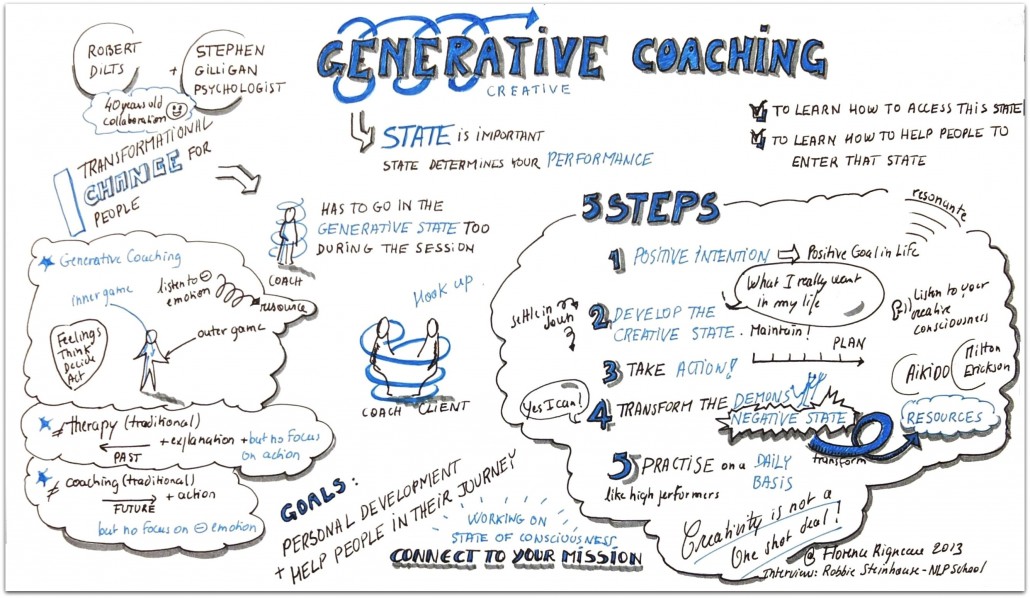 ROBERT
DILTS
+
STEPHEN
GILLIGAN
PSYCHOLOGIST
40 years old
collaboration
TRANSFORMATIONAL
CHANGE FOR
PEOPLE
GENERATIVE COACHING
CREATIVE
STATE is IMPORTANT
STATE DETERMINES YOUR PERFORMANCE
TO LEARN HOW TO ACCESS THIS STATE
TO LEARN HOW TO HELP PEOPLE TO
ENTER THAT STATE
HAS TO GO IN THE
GENERATIVE STATE TOO
DURING THE SESSION
COACH
Hook up
COACH CLIENT
Generative Coaching
inner game
listen to ⊖
emotion
resource
outer game
Feelings
Think
Decide
Act
≠ therapy (traditional)
PAST
+ explanation + but no focus
on action
≠ coaching (traditional)
FUTURE
+ action
but no focus on ⊖ emotion
GOALS:
PERSONAL DEVELOPMENT
+ HELP PEOPLE IN THEIR JOURNEY
WORKING ON
STATE OF CONSCIOUSNESS
CONNECT TO YOUR MISSION
5 STEPS
resonante
1 POSITIVE INTENTION ⇒ Positive Goal in Life
What I really want
in my life
settle in
down
2 DEVELOP THE
CREATIVE STATE. Maintain!
Listen to your
creative
consciousness
PLAN
3 TAKE ACTION!
AIKIDO
Milton
Erickson
Yes I can!
4 TRANSFORM THE DEMONS
NEGATIVE STATE
transform
RESOURCES
5 PRACTISE on a DAILY
BASIS
like high performers
Creativity is not a
One shot deal!
@ Florence Rigneau 2013
Interview: Robbie Steinhouse - NLP School